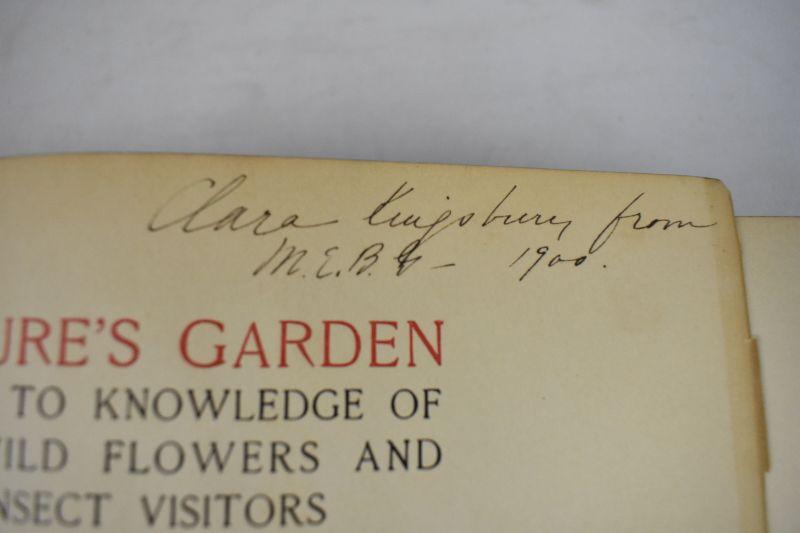 Clara Kingsbury from
M.E.B.G — 1900.
URE'S GARDEN
TO KNOWLEDGE OF
WILD FLOWERS AND
INSECT VISITORS